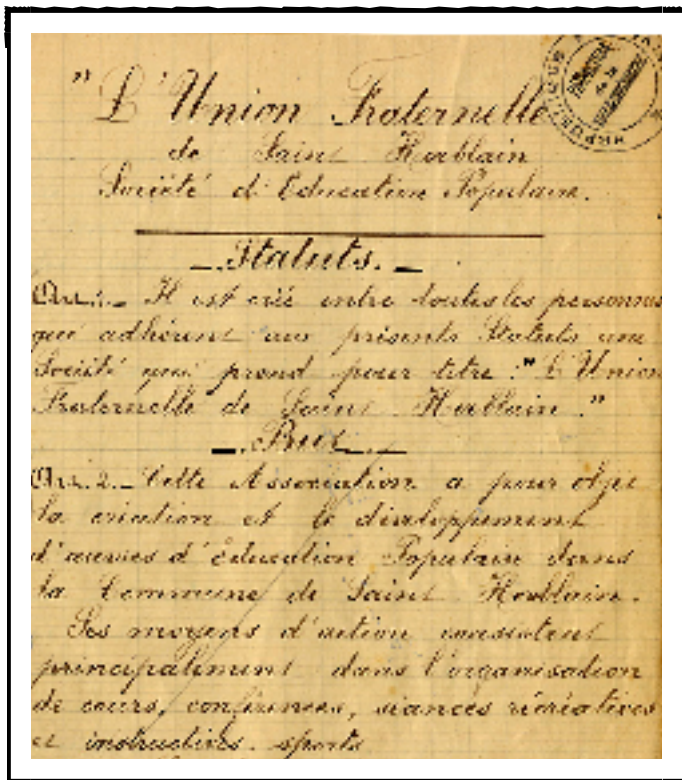 "L'Union Fraternelle
de Saint Herblain
Société d'Education Populaire.
Statuts.
Art. 1. _ Il est créé entre toutes les personnes
qui adhèrent aux présents Statuts une
Société qui prend pour titre : "L'Union
Fraternelle de Saint Herblain."
But
Art. 2. _ Cette Association a pour objet
la création et le développement
d'œuvres d'Education Populaire dans
la Commune de Saint Herblain.
Ses moyens d'action consistent
principalement dans l'organisation
de cours, conférences, séances récréatives
et instructives. sports